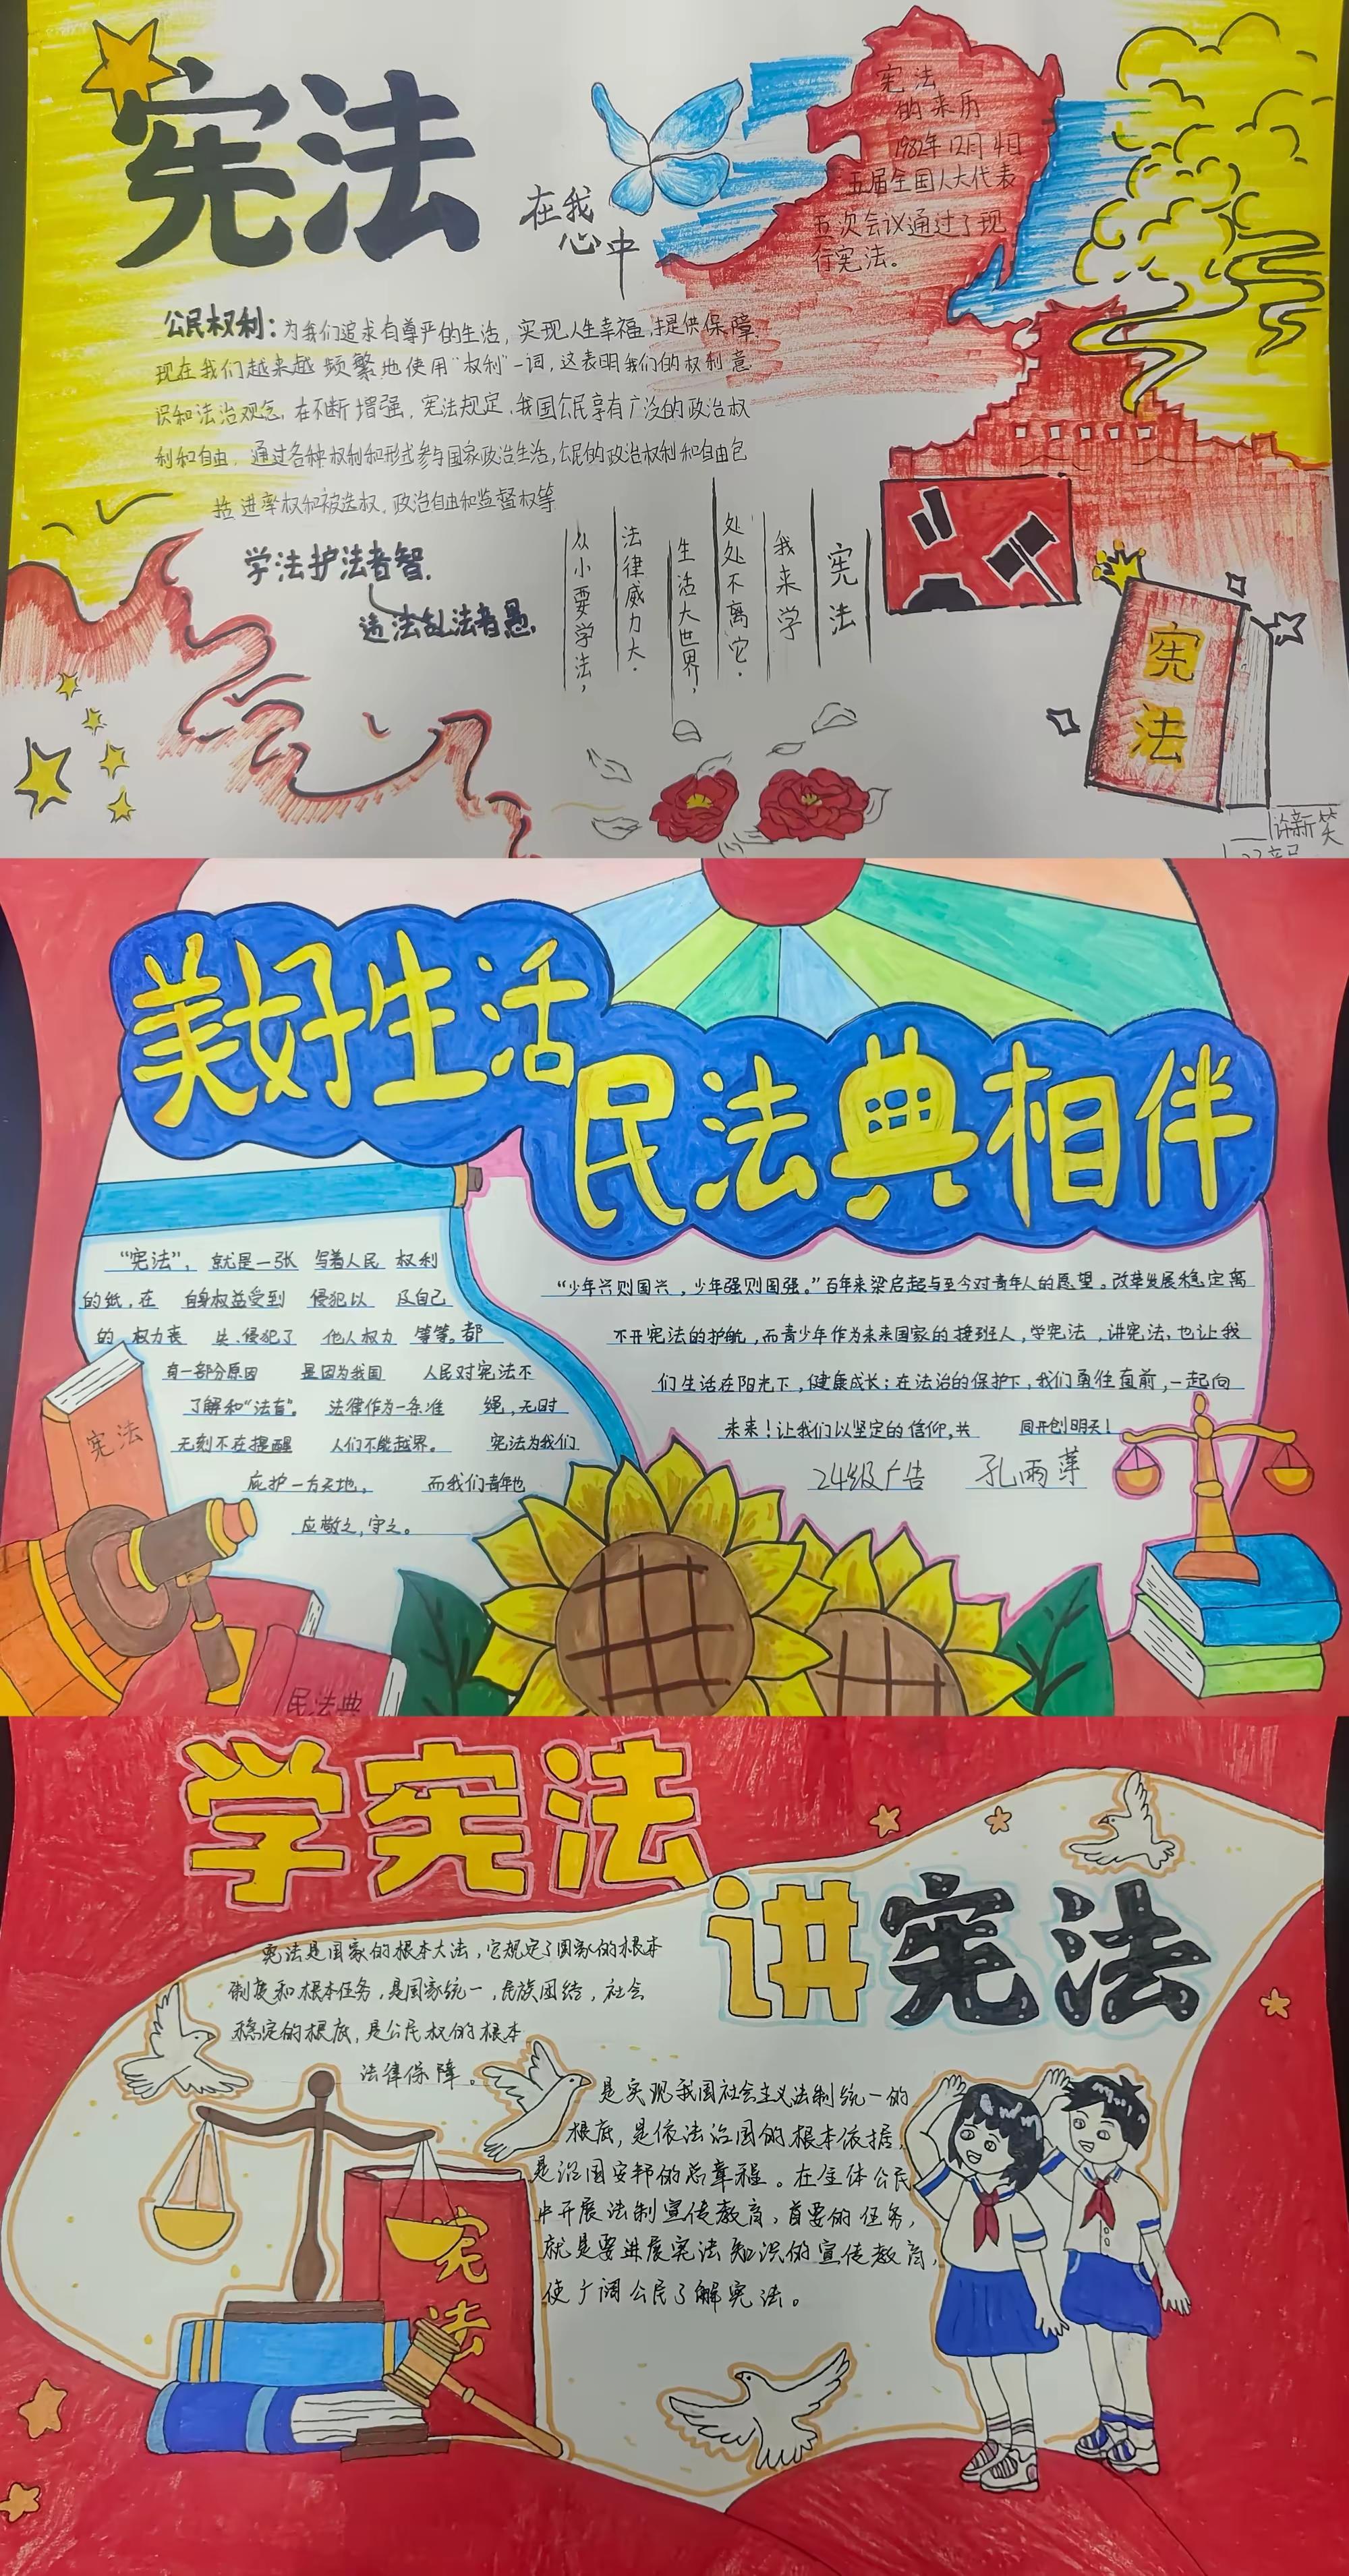 宪法
在我
心中
宪法
的来历
1982年12月4日
五届全国人大代表
五次会议通过了现
行宪法。
公民权利：为我们追求有尊严的生活，实现人生幸福，提供保障.
现在我们越来越频繁地使用"权利"一词，这表明我们的权利意
识和法治观念，在不断增强，宪法规定，我国公民享有广泛的政治权
利和自由，通过各种权利和形式参与国家政治生活，公民的政治权利和自由包
权和被选权，政治自由和监督权等
学法护法者智.
违法乱法者愚.
宪法
我来学
处处不离它.
生活大世界，
法律威力大.
从小要学法，
宪法
许新笑
美好生活
民法典相伴
"宪法"，就是一张 写着人民 权利
的纸，在 自身权益受到 侵犯以 及自己
的 权力丧 失、侵犯了 他人权力 等等。都
有一部分原因 是因为我国 人民对宪法不
了解和"法盲"。 法律作为一条准 绳，无时
无刻不在提醒 人们不能越界。 宪法为我们
庇护一方天地， 而我们青年也
应敬之，守之。
"少年兴则国兴，少年强则国强。"百年来梁启超与至今对青年人的愿望。改革发展稳定离
不开宪法的护航，而青少年作为未来国家的接班人，学宪法，讲宪法，也让我
们生活在阳光下，健康成长；在法治的保护下，我们勇往直前，一起向
未来！让我们以坚定的信仰，共 同开创明天！
24级广告 孔雨萍
宪法
民法典
学宪法
讲宪法
宪法是国家的根本大法，它规定了国家的根本
制度和根本任务，是国家统一，民族团结，社会
稳定的根底，是公民权的根本
法律保障。
是实现我国社会主义法制统一的
根底，是依法治国的根本依据，
是治国安邦的总章程。在全体公民
中开展法制宣传教育，首要的任务，
就是要进展宪法知识的宣传教育，
使广阔公民了解宪法。
宪法